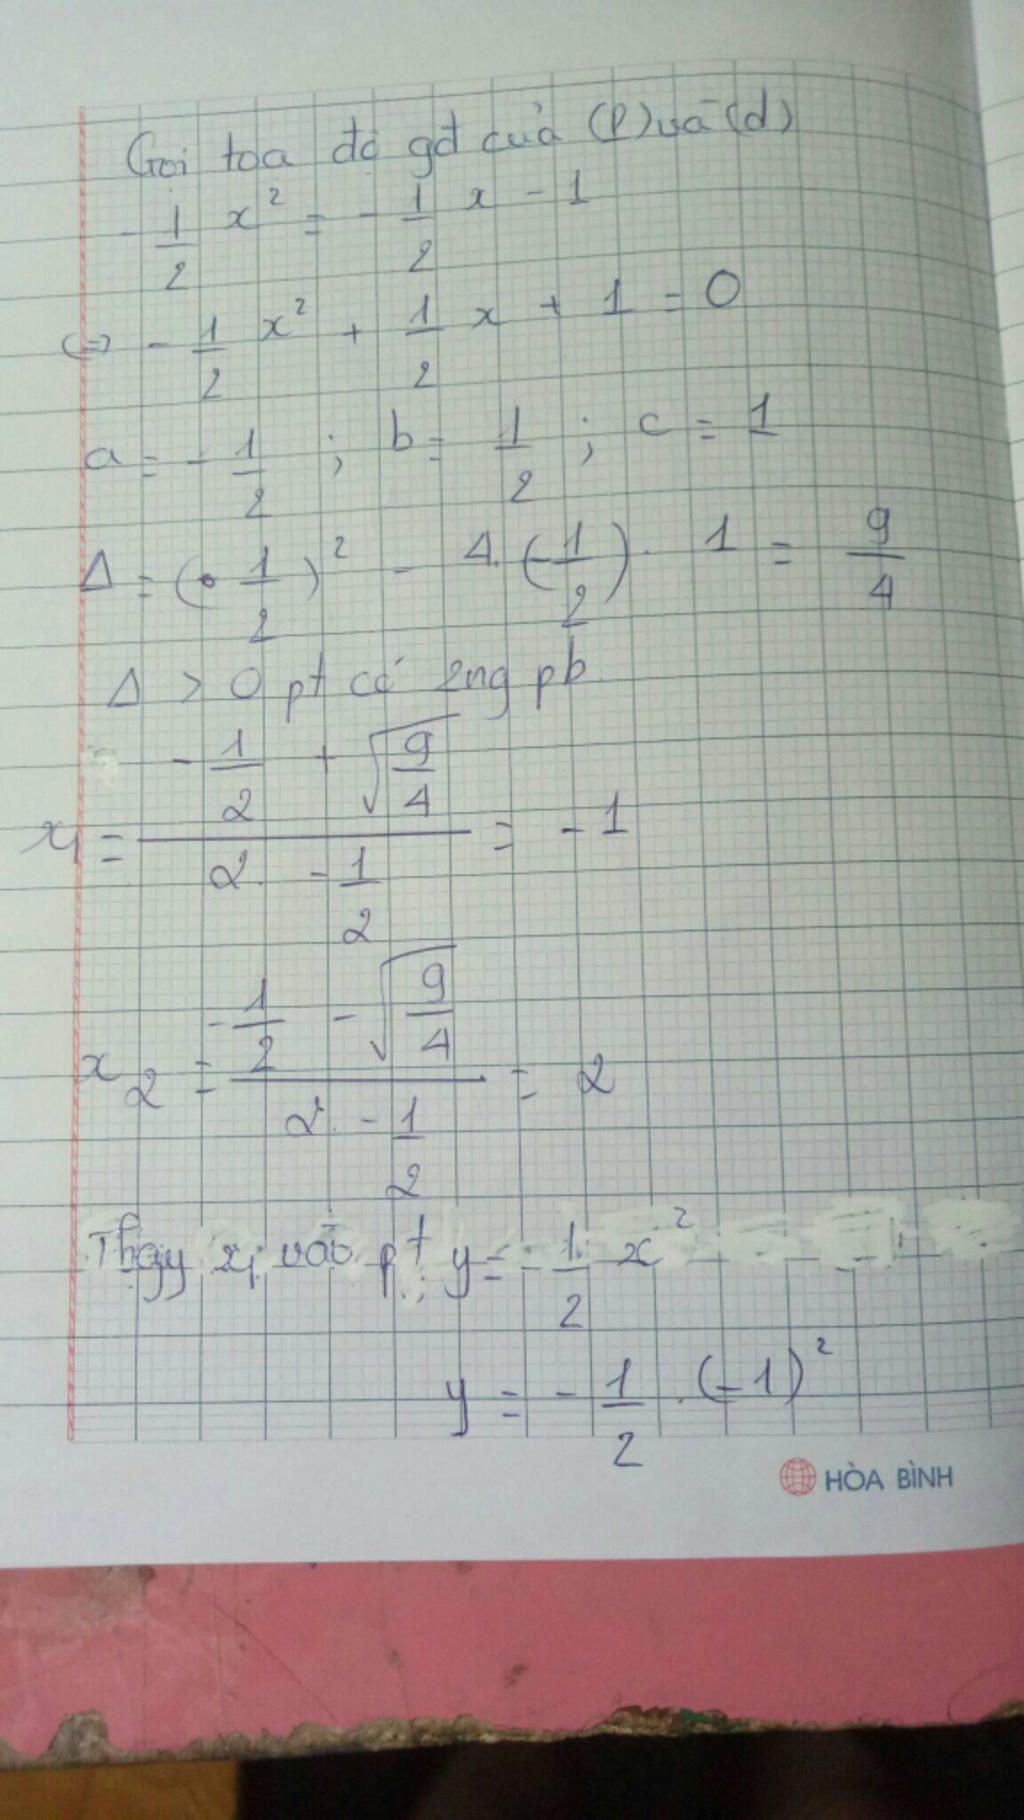 Gọi tọa độ gđ của (P) và (d)
- 1/2 x² = - 1/2 x - 1
⇔ - 1/2 x² + 1/2 x + 1 = 0
a = - 1/2 ; b = 1/2 ; c = 1
Δ = (1/2)² - 4. (-1/2) . 1 = 9/4
Δ > 0 pt có 2ng pb
x₁ = (- 1/2 + √(9/4)) / (2. - 1/2) = - 1
x₂ = (- 1/2 - √(9/4)) / (2. - 1/2) = 2
Thay x₁ vào pt y = - 1/2 x²
y = - 1/2 . (-1)²
HÒA BÌNH